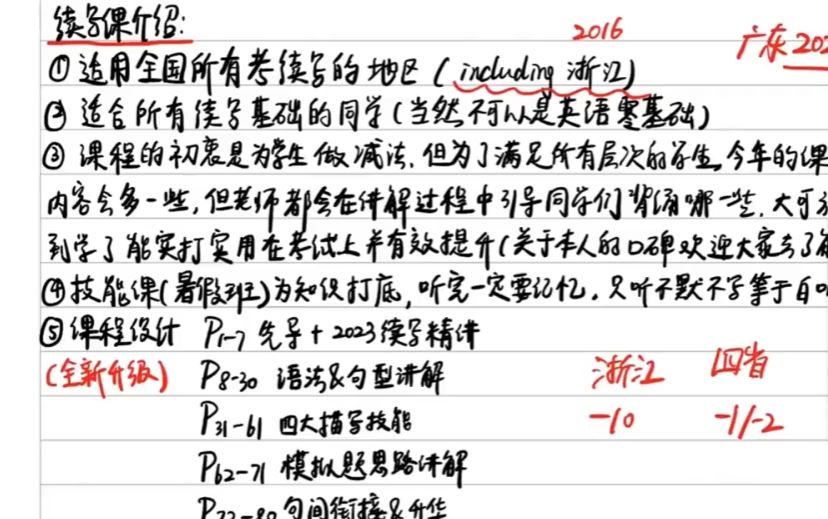 续写课介绍: 2016 广东 202
① 适用全国所有考续写的地区 (including 浙江)
② 适合所有续写基础的同学 (当然不可以是英语零基础)
③ 课程的初衷是为学生做减法, 但为了满足所有层次的学生, 今年的课
内容会多一些, 但老师都会在讲解过程中引导同学们背诵哪一些, 大可
到学了能实打实用在考试上并有效提升 (关于本人的口碑欢迎大家去了解
④ 技能课 (暑假班) 为知识打底, 听完一定要记忆. 只听不默不写等于白
⑤ 课程设计 P1-7 先导 + 2023续写精讲
(全新升级) P8-30 语法&句型讲解 浙江 四省
P31-61 四大描写技能 -10 -1/-2
P62-71 模拟题思路讲解
P72-80 句间衔接&升华